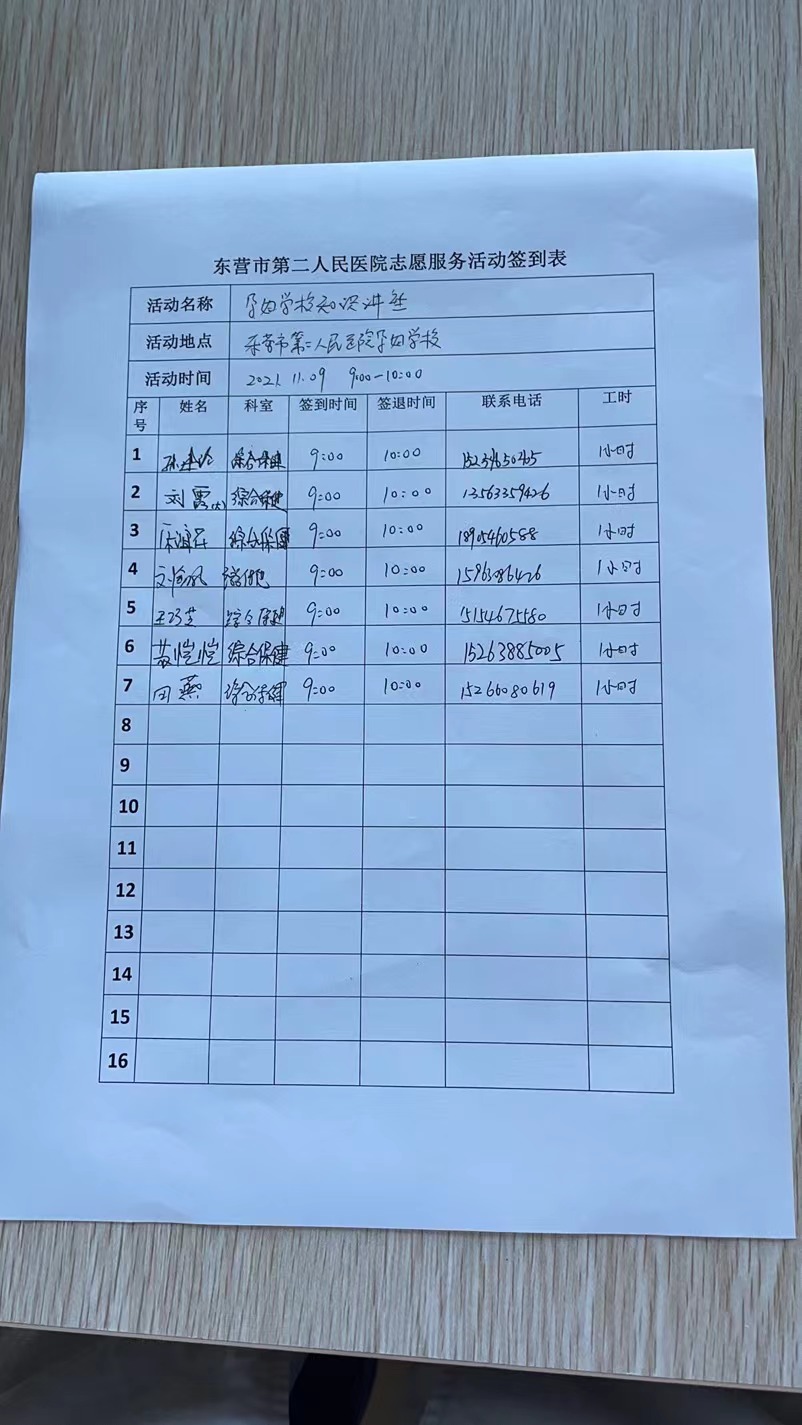 东营市第二人民医院志愿服务活动签到表
活动名称 孕妇学校知识讲座
活动地点 东营市第二人民医院孕妇学校
活动时间 2021.11.09 9:00-10:00
序号 姓名 科室 签到时间 签退时间 联系电话 工时
1 综合保健 9:00 10:00 1小时
2 刘霞(大) 综合保健 9:00 10:00 13563359426 1小时
3 综合保健 9:00 10:00 18905460588 1小时
4 9:00 10:00 15963086426 1小时
5 王巧芝 综合保健 9:00 10:00 15154675580 1小时
6 苏恺恺 综合保健 9:00 10:00 15263885005 1小时
7 田燕 综合保健 9:00 10:00 15266080619 1小时
8
9
10
11
12
13
14
15
16